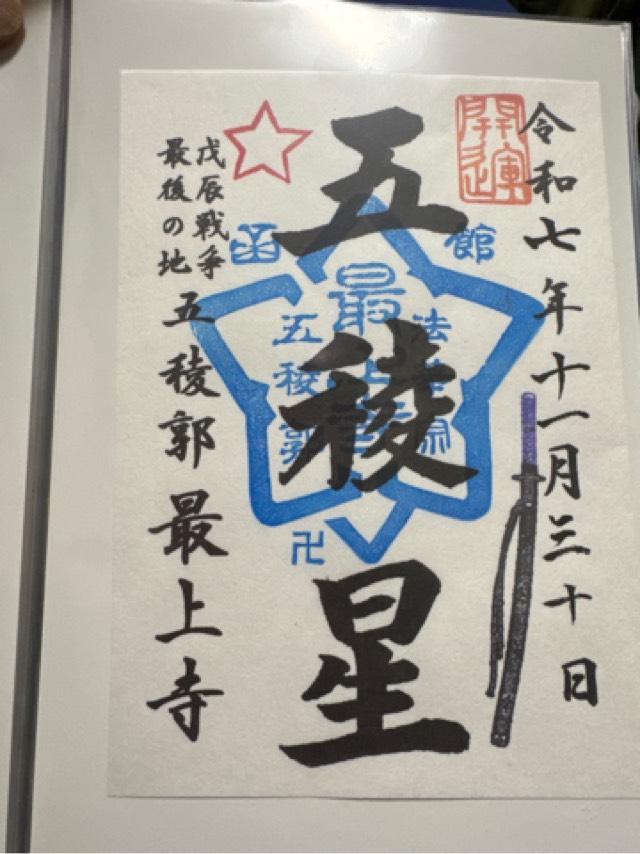 令和七年十一月三十日
開運
五稜星
函館
法華宗
最上寺
五稜郭
卍
戊辰戦争
最後の地
五稜郭 最上寺